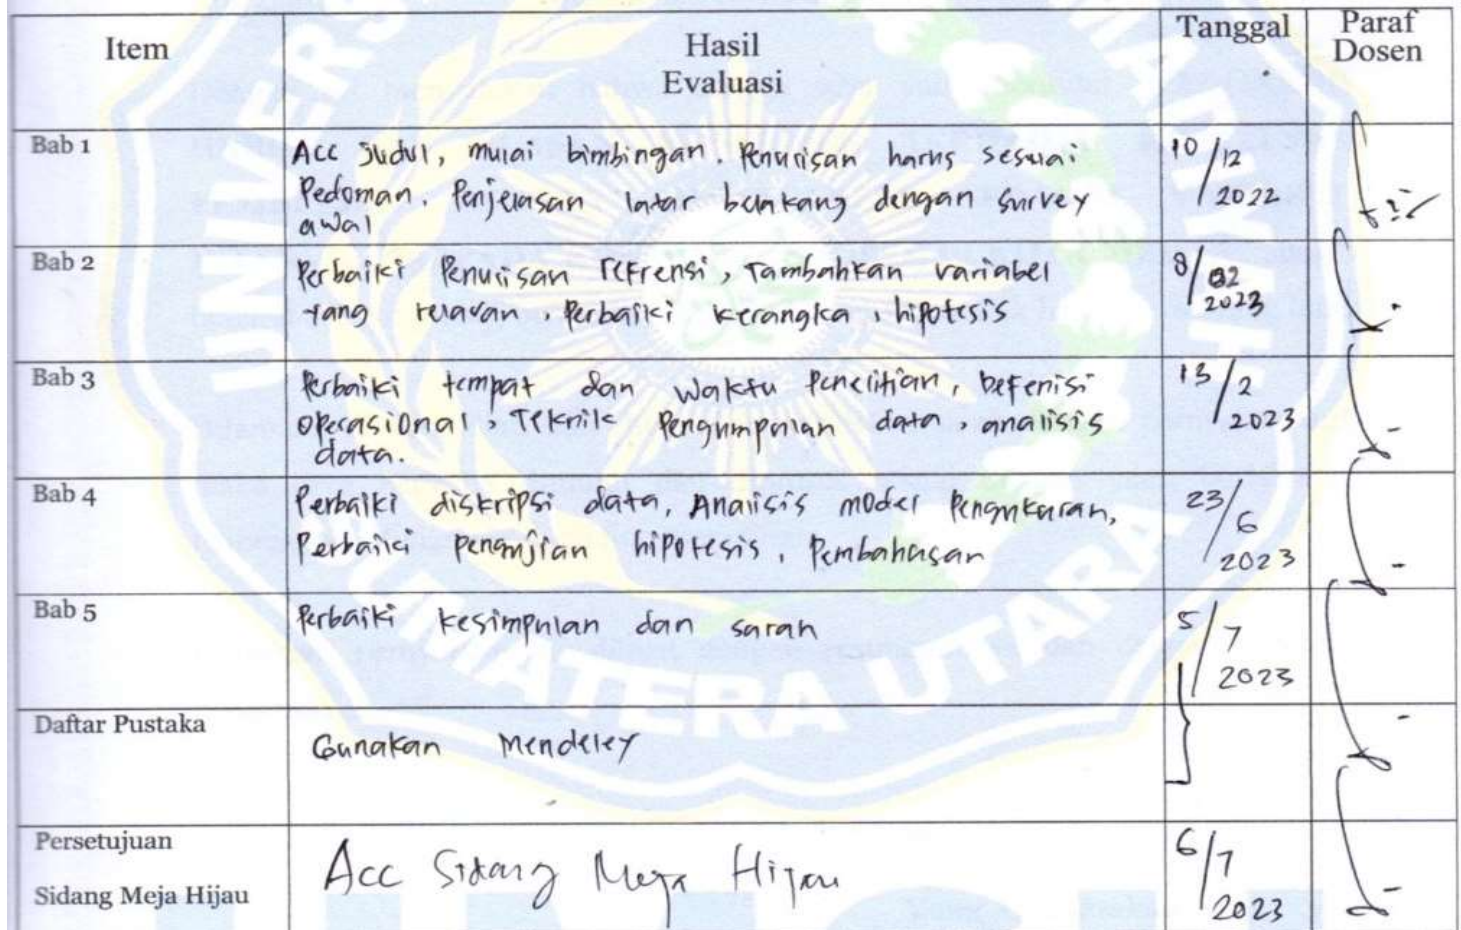 Item
Hasil
Evaluasi
Tanggal
Paraf
Dosen
Bab 1
Acc Judul, mulai bimbingan. Penulisan harus sesuai
Pedoman. Penjelasan latar belakang dengan survey
awal
10/12
2022
Bab 2
Perbaiki Penulisan refrensi, Tambahkan variabel
yang relavan, Perbaiki kerangka, hipotesis
8/02
2023
Bab 3
Perbaiki tempat dan waktu Penelitian, Defenisi
operasional, Teknik Pengumpulan data, analisis
data.
13/2
2023
Bab 4
Perbaiki diskripsi data, Analisis model Pengukuran,
Perbaiki pengujian hipotesis, Pembahasan
23/6
2023
Bab 5
Perbaiki kesimpulan dan saran
5/7
2023
Daftar Pustaka
Gunakan Mendeley
Persetujuan
Sidang Meja Hijau
Acc Sidang Meja Hijau
6/7
2023
UNIVERS
MADIYAH
SUMATERA UTARA